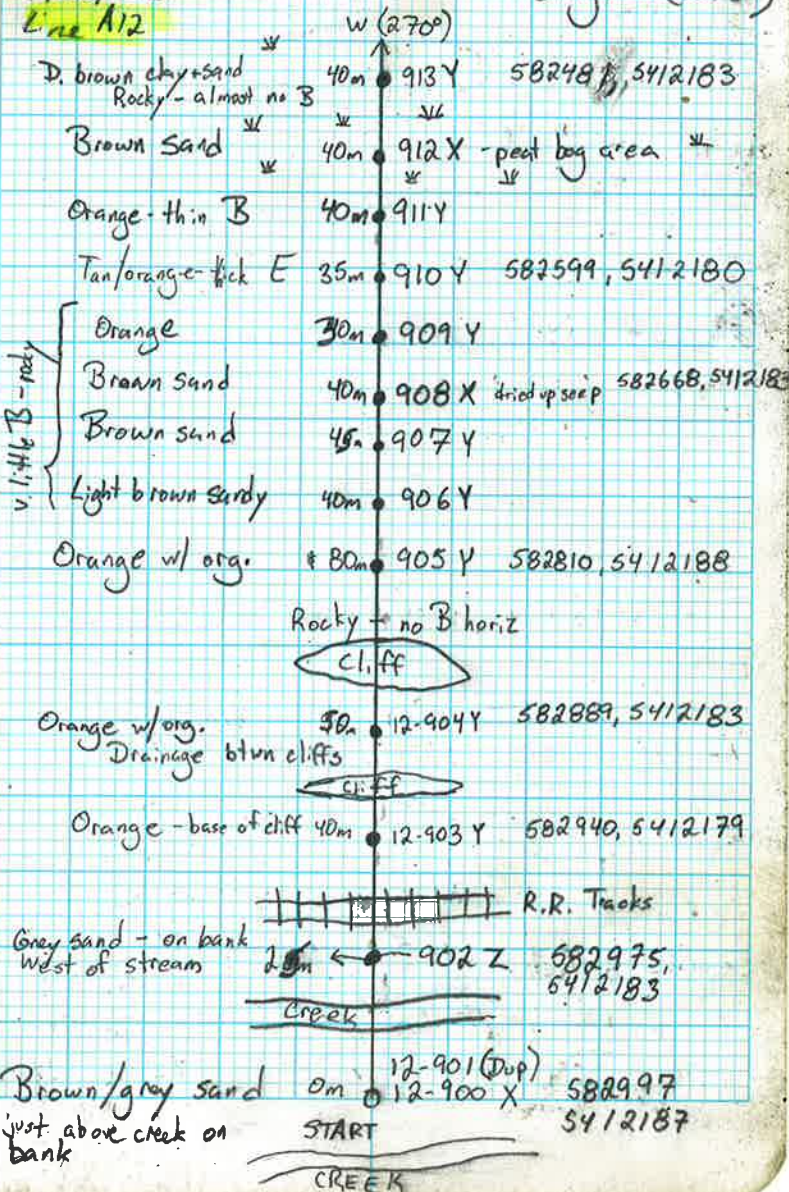 Line A12
W (270°)
D. brown clay+sand 40m 913 Y 582481, 5412183
Rocky - almost no B
Brown sand 40m 912 X - peat bog area
Orange - thin B 40m 911 Y
Tan/orange - thick E 35m 910 Y 582599, 5412180
v. little B - rocky
Orange 30m 909 Y
Brown sand 40m 908 X dried up seep 582668, 5412183
Brown sand 45m 907 Y
Light brown sandy 40m 906 Y
Orange w/ org. 80m 905 Y 582810, 5412188
Rocky - no B horiz
Cliff
Orange w/ org. 50m 12-904 Y 582889, 5412183
Drainage btwn cliffs
Cliff
Orange - base of cliff 40m 12-903 Y 582940, 5412179
R.R. Tracks
Grey sand - on bank 902 Z 582975,
West of stream 5412183
Creek
12-901 (Dup)
Brown/grey sand 0m 12-900 X 582997
5412187
just above creek on
bank
START
CREEK